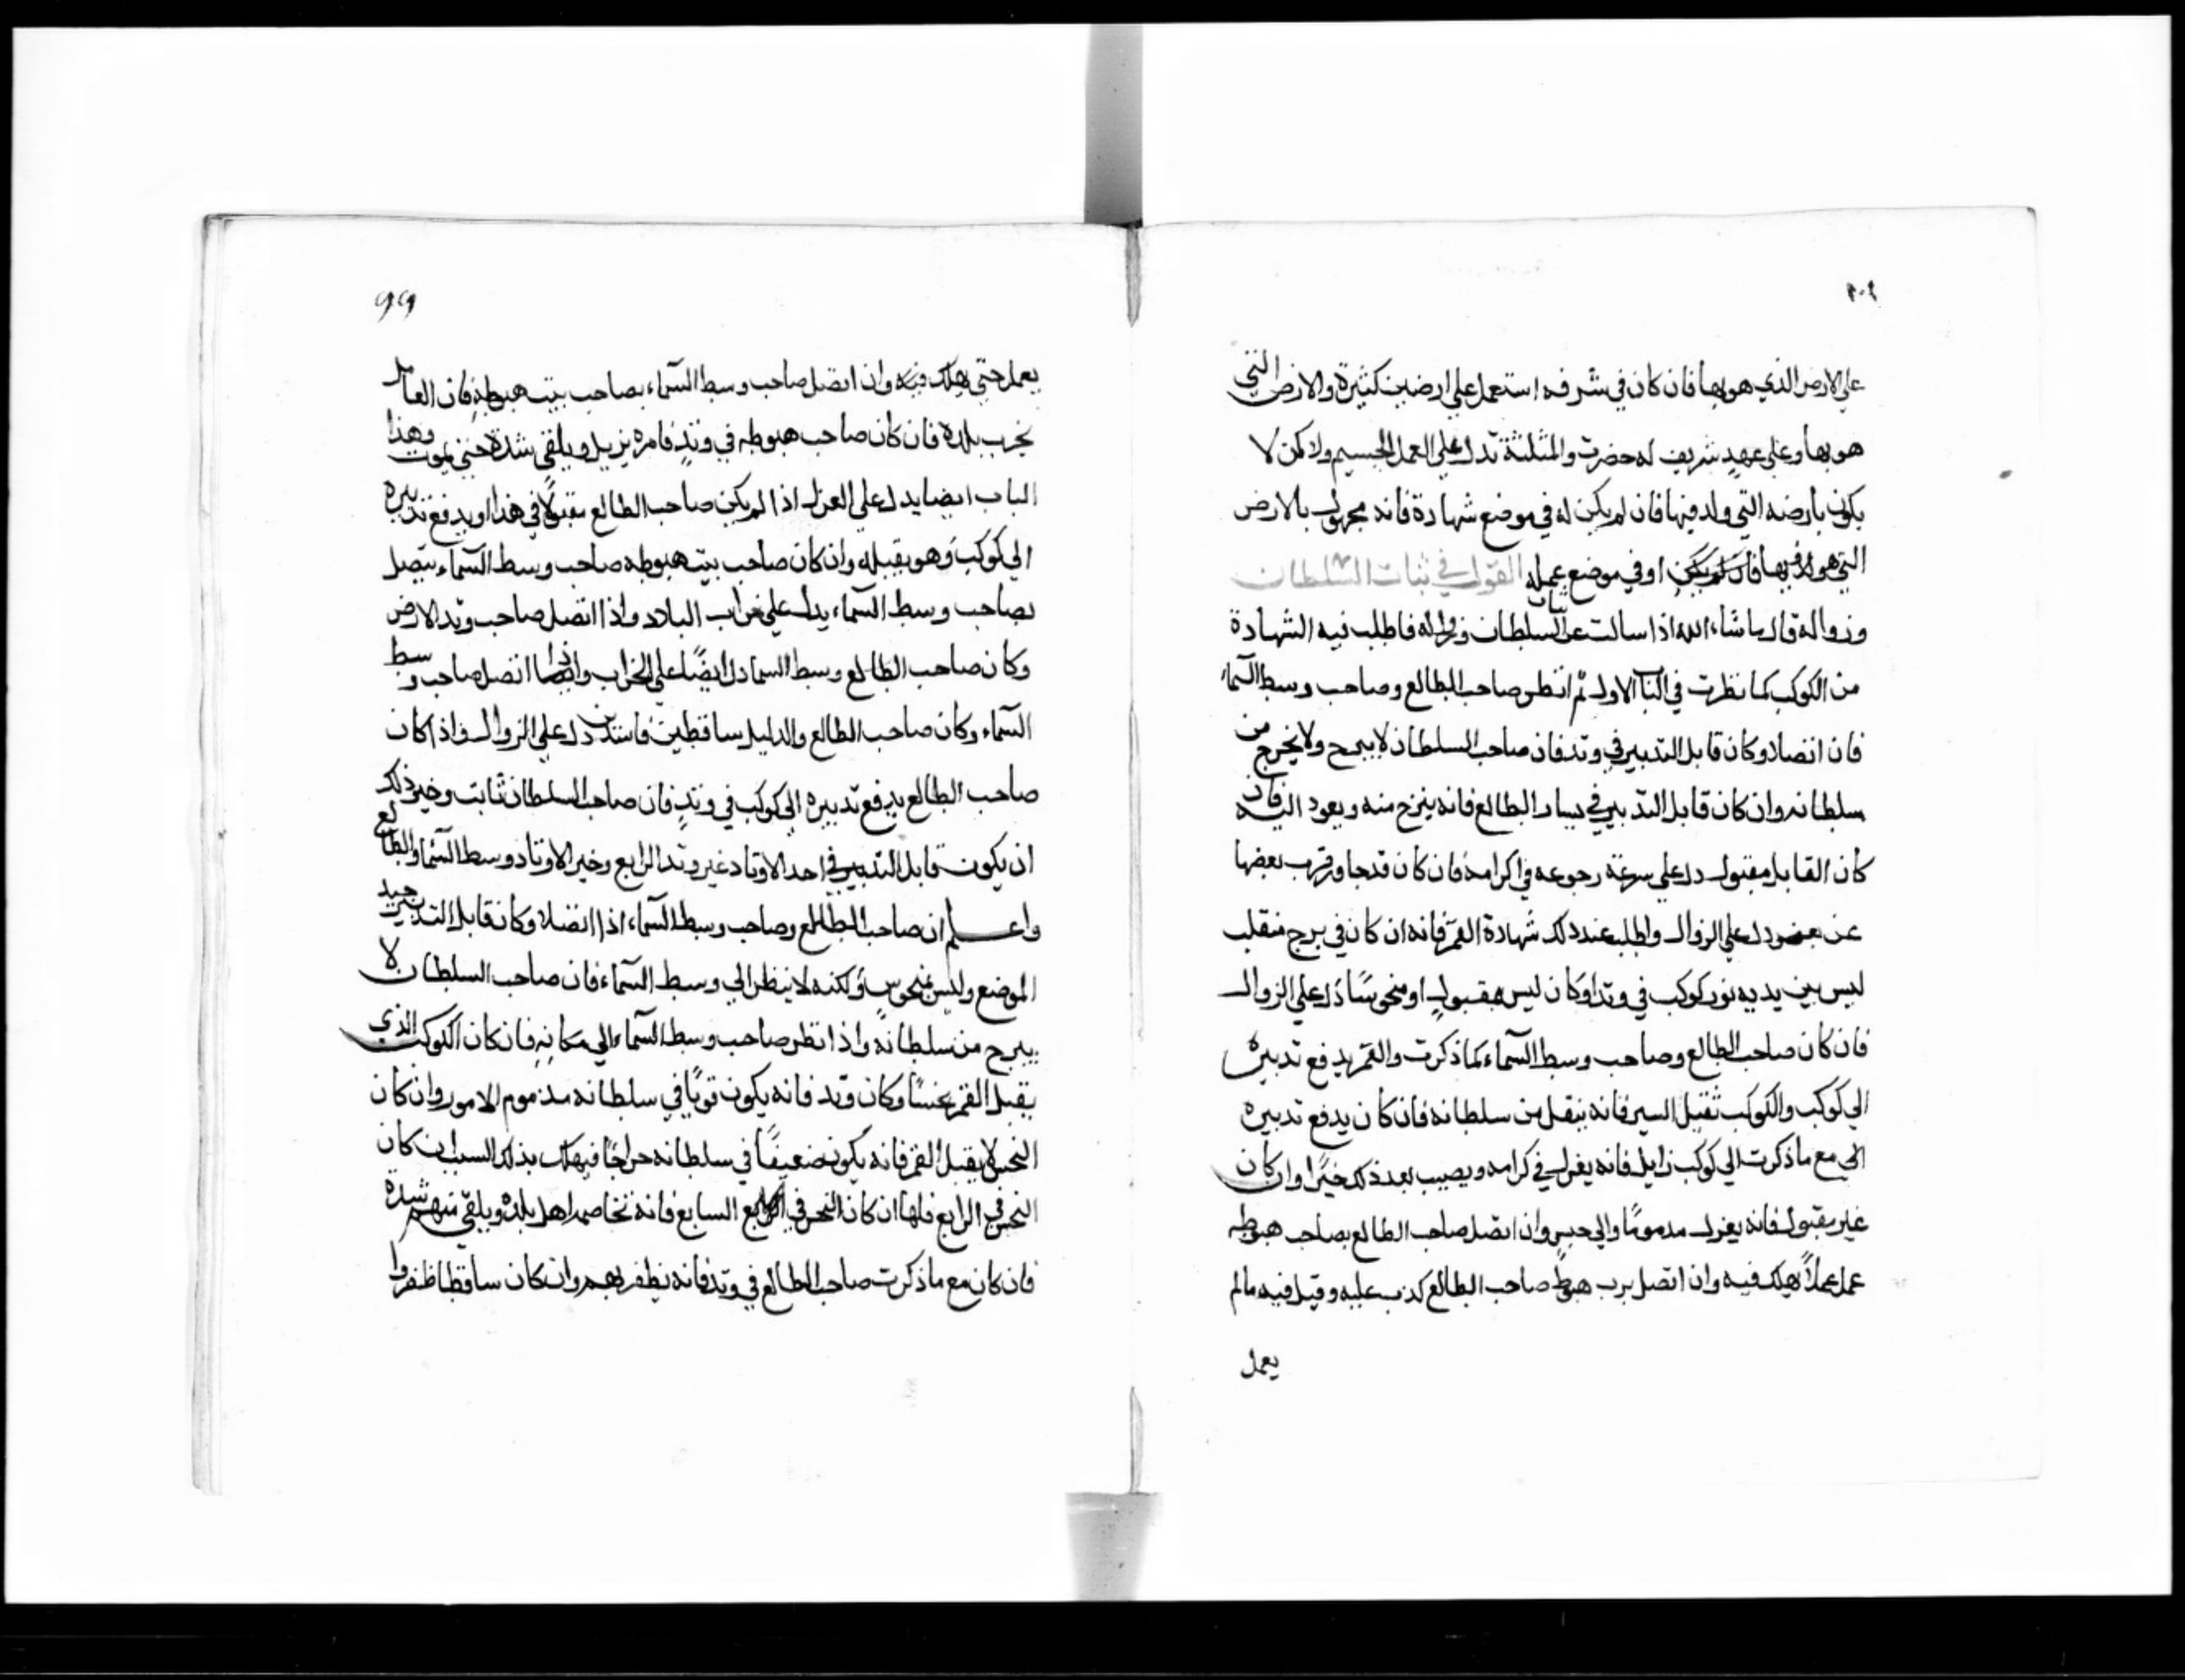 على الارض الذي هو بها فان كان في شرفه استعمل على ارضين كثيرة والارض التي
هو بها وعلى عهد شريف له حضرت والمثلثة تدل على العمل الجسيم ولاكن لا
يكون بارضه التي ولد فيها فان لم يكن له في موضع شهادة فانه مجهول بالارض
التي هو بها او في موضع عمله القول في ثبات السلطان
وزواله قال ما شاء الله اذا سالت عن ثبات السلطان وزواله فاطلب فيه الشهادة
من الكوكب كما نظرت في الباب الاول ثم انظر صاحب الطالع وصاحب وسط السماء
فان اتصلا وكان قابل التدبير في وتد فان صاحب السلطان لا يبرح ولا يخرج من
سلطانه وان كان قابل التدبير في يسار الطالع فانه ينزح منه ويعود اليه فان
كان القابل مقبول دل على سرعة رجوعه في اكرامه فان كان قد جاوز قرب بعضها
عن بعض دل على الزوال واطلب عند ذلك شهادة القمر فانه ان كان في برج منقلب
ليس بين يديه نور كوكب في وتد اوكان ليس بمقبول او منحوسًا دل على الزوال
فان كان صاحب الطالع وصاحب وسط السماء كما ذكرت والقمر يدفع تدبيره
الى كوكب والكوكب ثقيل السير فانه ينقل من سلطانه فان كان يدفع تدبيره
الى مع ما ذكرت الى كوكب زايل فانه يعزل في كرامه ويصيب بعد ذلك خيرًا وان كان
غير مقبول فانه يعزل مدمومًا والى حبس وان اتصل صاحب الطالع بصاحب هبوطه
عمل عملاً هلك فيه وان اتصل برب هبوط صاحب الطالع كذب عليه وقيل فيه مالم
يعمل
99
يعمل حتى يهلك فيه وان اتصل صاحب وسط السماء بصاحب بيت هبوطه فان العامل
يخرب بلده فان كان صاحب هبوطه في وتد فامره يزيل ويلقى شدة حتى يموت وهذا
الباب ايضا يدل على العزل اذا لم يكن صاحب الطالع مقبولًا في هذا او يدفع تدبيره
الى كوكب وهو يقبله وان كان صاحب بيت هبوطه صاحب وسط السماء يتصل
بصاحب وسط السماء يدل على خراب البلاد واذا اتصل صاحب وتد الارض
وكان صاحب الطالع وسط السما دل ايضًا على الخراب واذا اتصل صاحب وسط
السماء وكان صاحب الطالع والدليل ساقطين دل على الزوال واذا كان
صاحب الطالع يدفع تدبيره الى كوكب في وتد فان صاحب السلطان ثابت وخير ذلك
ان يكون قابل التدبير في احد الاوتاد غير وتد الرابع وخير الاوتاد وسط السما والطالع
واعلم ان صاحب الطالع وصاحب وسط السماء اذا اتصلا وكان قابل التدبير جيد
الموضع وليس بمنحوس ولكنه لا ينظر الى وسط السماء فان صاحب السلطان لا
يبرح من سلطانه واذا نظر صاحب وسط السماء الى مكانه فان كان الكوكب الذي
يقبل القمر نحسًا وكان وتد فانه يكون قويًا في سلطانه مذموم الامور وان كان
النحس لا يقبل القمر فانه يكون ضعيفًا في سلطانه فيهلك بذلك السبب ان كان
النحس في الرابع فاما ان كان النحس في السابع فانه تخاصمه اهل بلده ويلقى منهم شدة
فان كان مع ما ذكرت صاحب الطالع في وتد فانه يظفر بهم وان كان ساقطا ظفروا